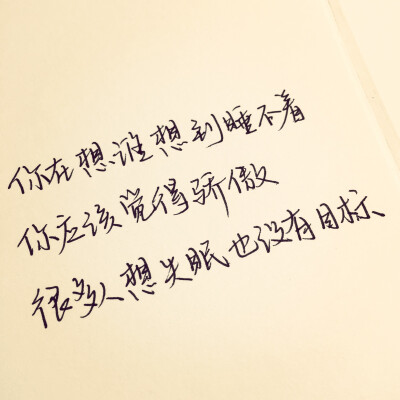 你在想谁想到睡不着
你应该觉得骄傲
很多人想失眠也没有目标